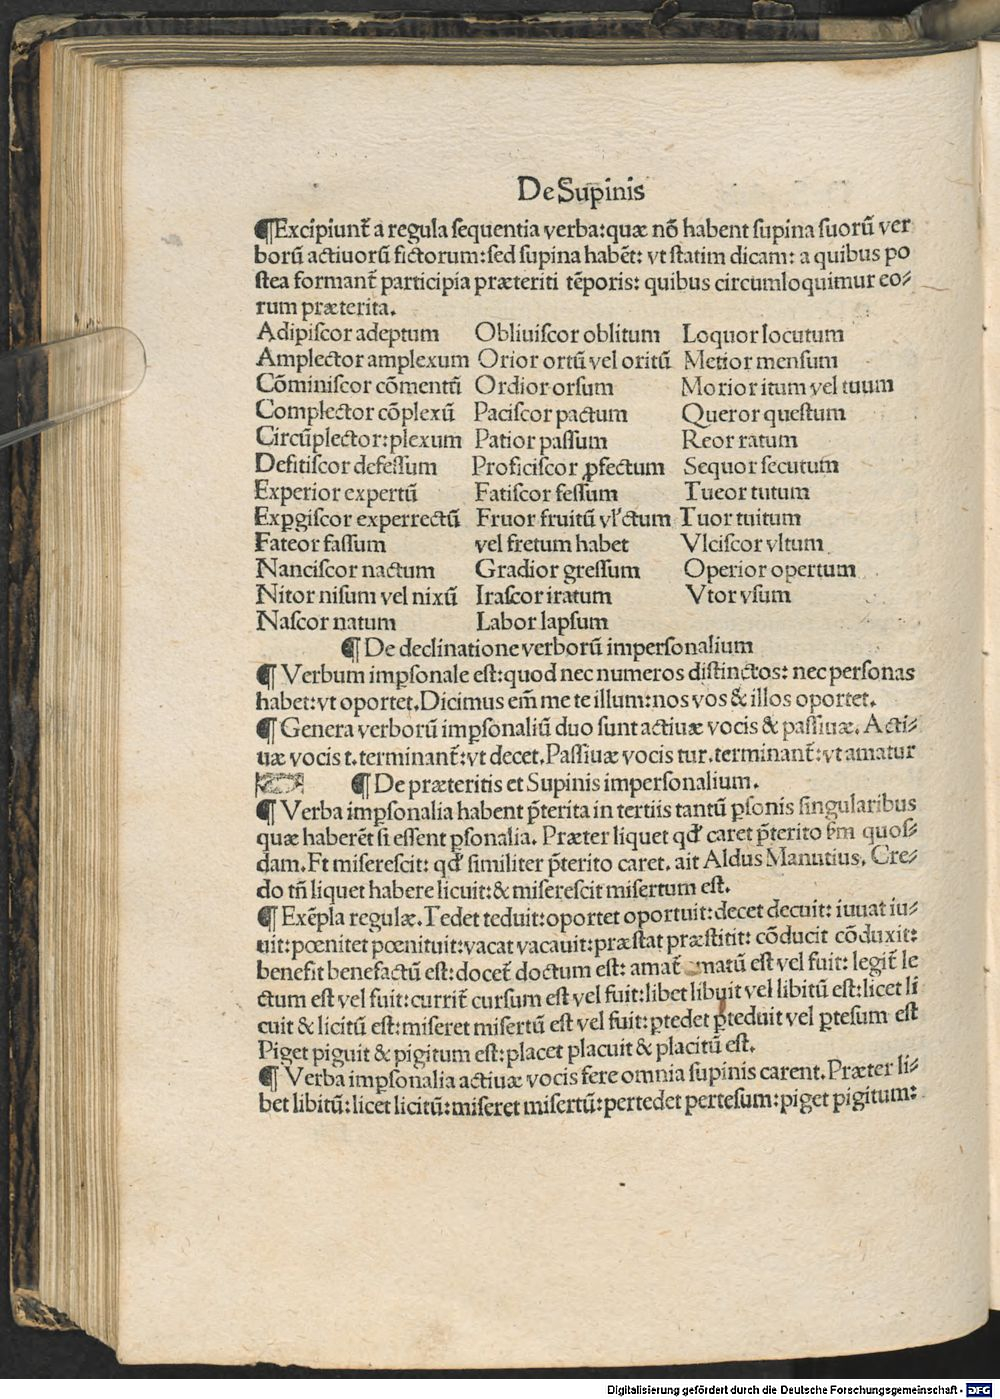 De Supinis
¶Excipiunt̃ a regula sequentia verba:quæ nõ habent supina suorũ ver
borũ actiuorũ fictorum:sed supina habẽt: vt statim dicam: a quibus po
stea formant̃ participia præteriti tẽporis: quibus circumloquimur eo⸗
rum præterita.
Adipiscor adeptum Obliuiscor oblitum Loquor locutum
Amplector amplexum Orior ortũ vel oritũ Metior mensum
Cõminiscor cõmentũ Ordior orsum Morior itum vel tuum
Complector cõplexũ Paciscor pactum Queror questum
Circũplector:plexum Patior passum Reor ratum
Defitiscor defessum Proficiscor ꝓfectum Sequor secutum
Experior expertũ Fatiscor fessum Tueor tutum
Exꝑgiscor experrectũ Fruor fruitũ vl̕ctum Tuor tuitum
Fateor fassum vel fretum habet Vlciscor vltum
Nanciscor nactum Gradior gressum Operior opertum
Nitor nisum vel nixũ Irascor iratum Vtor vsum
Nascor natum Labor lapsum
¶ De declinatione verborũ impersonalium
¶ Verbum imꝑsonale est:quod nec numeros distinctos: nec personas
habet:vt oportet.Dicimus em̃ me te illum:nos vos & illos oportet.
¶ Genera verborũ imꝑsonaliũ duo sunt actiuæ vocis & passiuæ. Acti⸗
uæ vocis t.terminant̃:vt decet.Passiuæ vocis tur.terminant̃:vt amatur
¶ De præteritis et Supinis impersonalium.
¶ Verba imꝑsonalia habent p̃terita in tertiis tantũ ꝑsonis singularibus
quæ haberẽt si essent ꝑsonalia. Præter liquet qđ caret p̃terito quos⸗
dam. Et miserescit: qđ similiter p̃terito caret. ait Aldus Manutius. Cre⸗
do tñ liquet habere licuit:& miserescit misertum est.
¶ Exẽpla regulæ.Tedet teduit:oportet oportuit:decet decuit: iuuat iu⸗
uit:pœnitet pœnituit:vacat vacauit:præstat præstitit: cõducit cõduxit:
benefit benefactũ est:docet̃ doctum est: amat̃ matũ est vel fuit: legit̃ le
ctum est vel fuit:currit̃ cursum est vel fuit:libet libuit vel libitũ est:licet li
cuit & licitũ est:miseret misertũ est vel fuit:ꝑtedet ꝑteduit vel ꝑtesum est
Piget piguit & pigitum est:placet placuit & placitũ est.
¶ Verba imꝑsonalia actiuæ vocis fere omnia supinis carent.Præter li⸗
bet libitũ:licet licitũ:miseret misertũ:pertedet pertesum:piget pigitum:
Digitalisierung gefördert durch die Deutsche Forschungsgemeinschaft - DFG